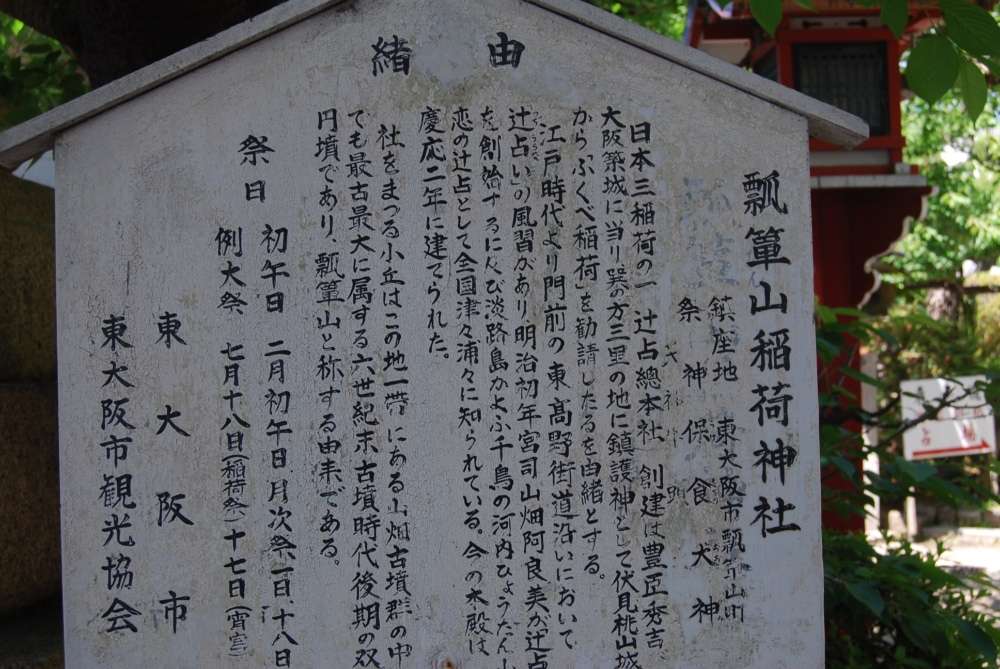 由緒
瓢箪山稲荷神社
鎮座地 東大阪市瓢箪山町
祭神 保食大神
日本三稲荷の一 辻占總本社 創建は豊臣秀吉
大阪築城に当り、巽の方三里の地に鎮護神として伏見桃山城
からふくべ稲荷」を勧請したるを由緒とする。
江戸時代より門前の東高野街道沿いにおいて
辻占い」の風習があり明治初年宮司山畑阿良美が辻占
を創始するに及び淡路島かよふ千鳥の河内ひょうたん山
恋の辻占として全国津々浦々に知られている。今の本殿は
慶応二年に建てられた。
社をまつる小丘はこの地一帯にある山畑古墳群の中
でも最古最大に属する六世紀末古墳時代後期の双
円墳であり、瓢箪山と称する由来である。
祭日 初午日 二月初午日 月次祭 一日 十八日
例大祭 七月十八日(稲荷祭) 十七日(宵宮)
東大阪市
東大阪市観光協会